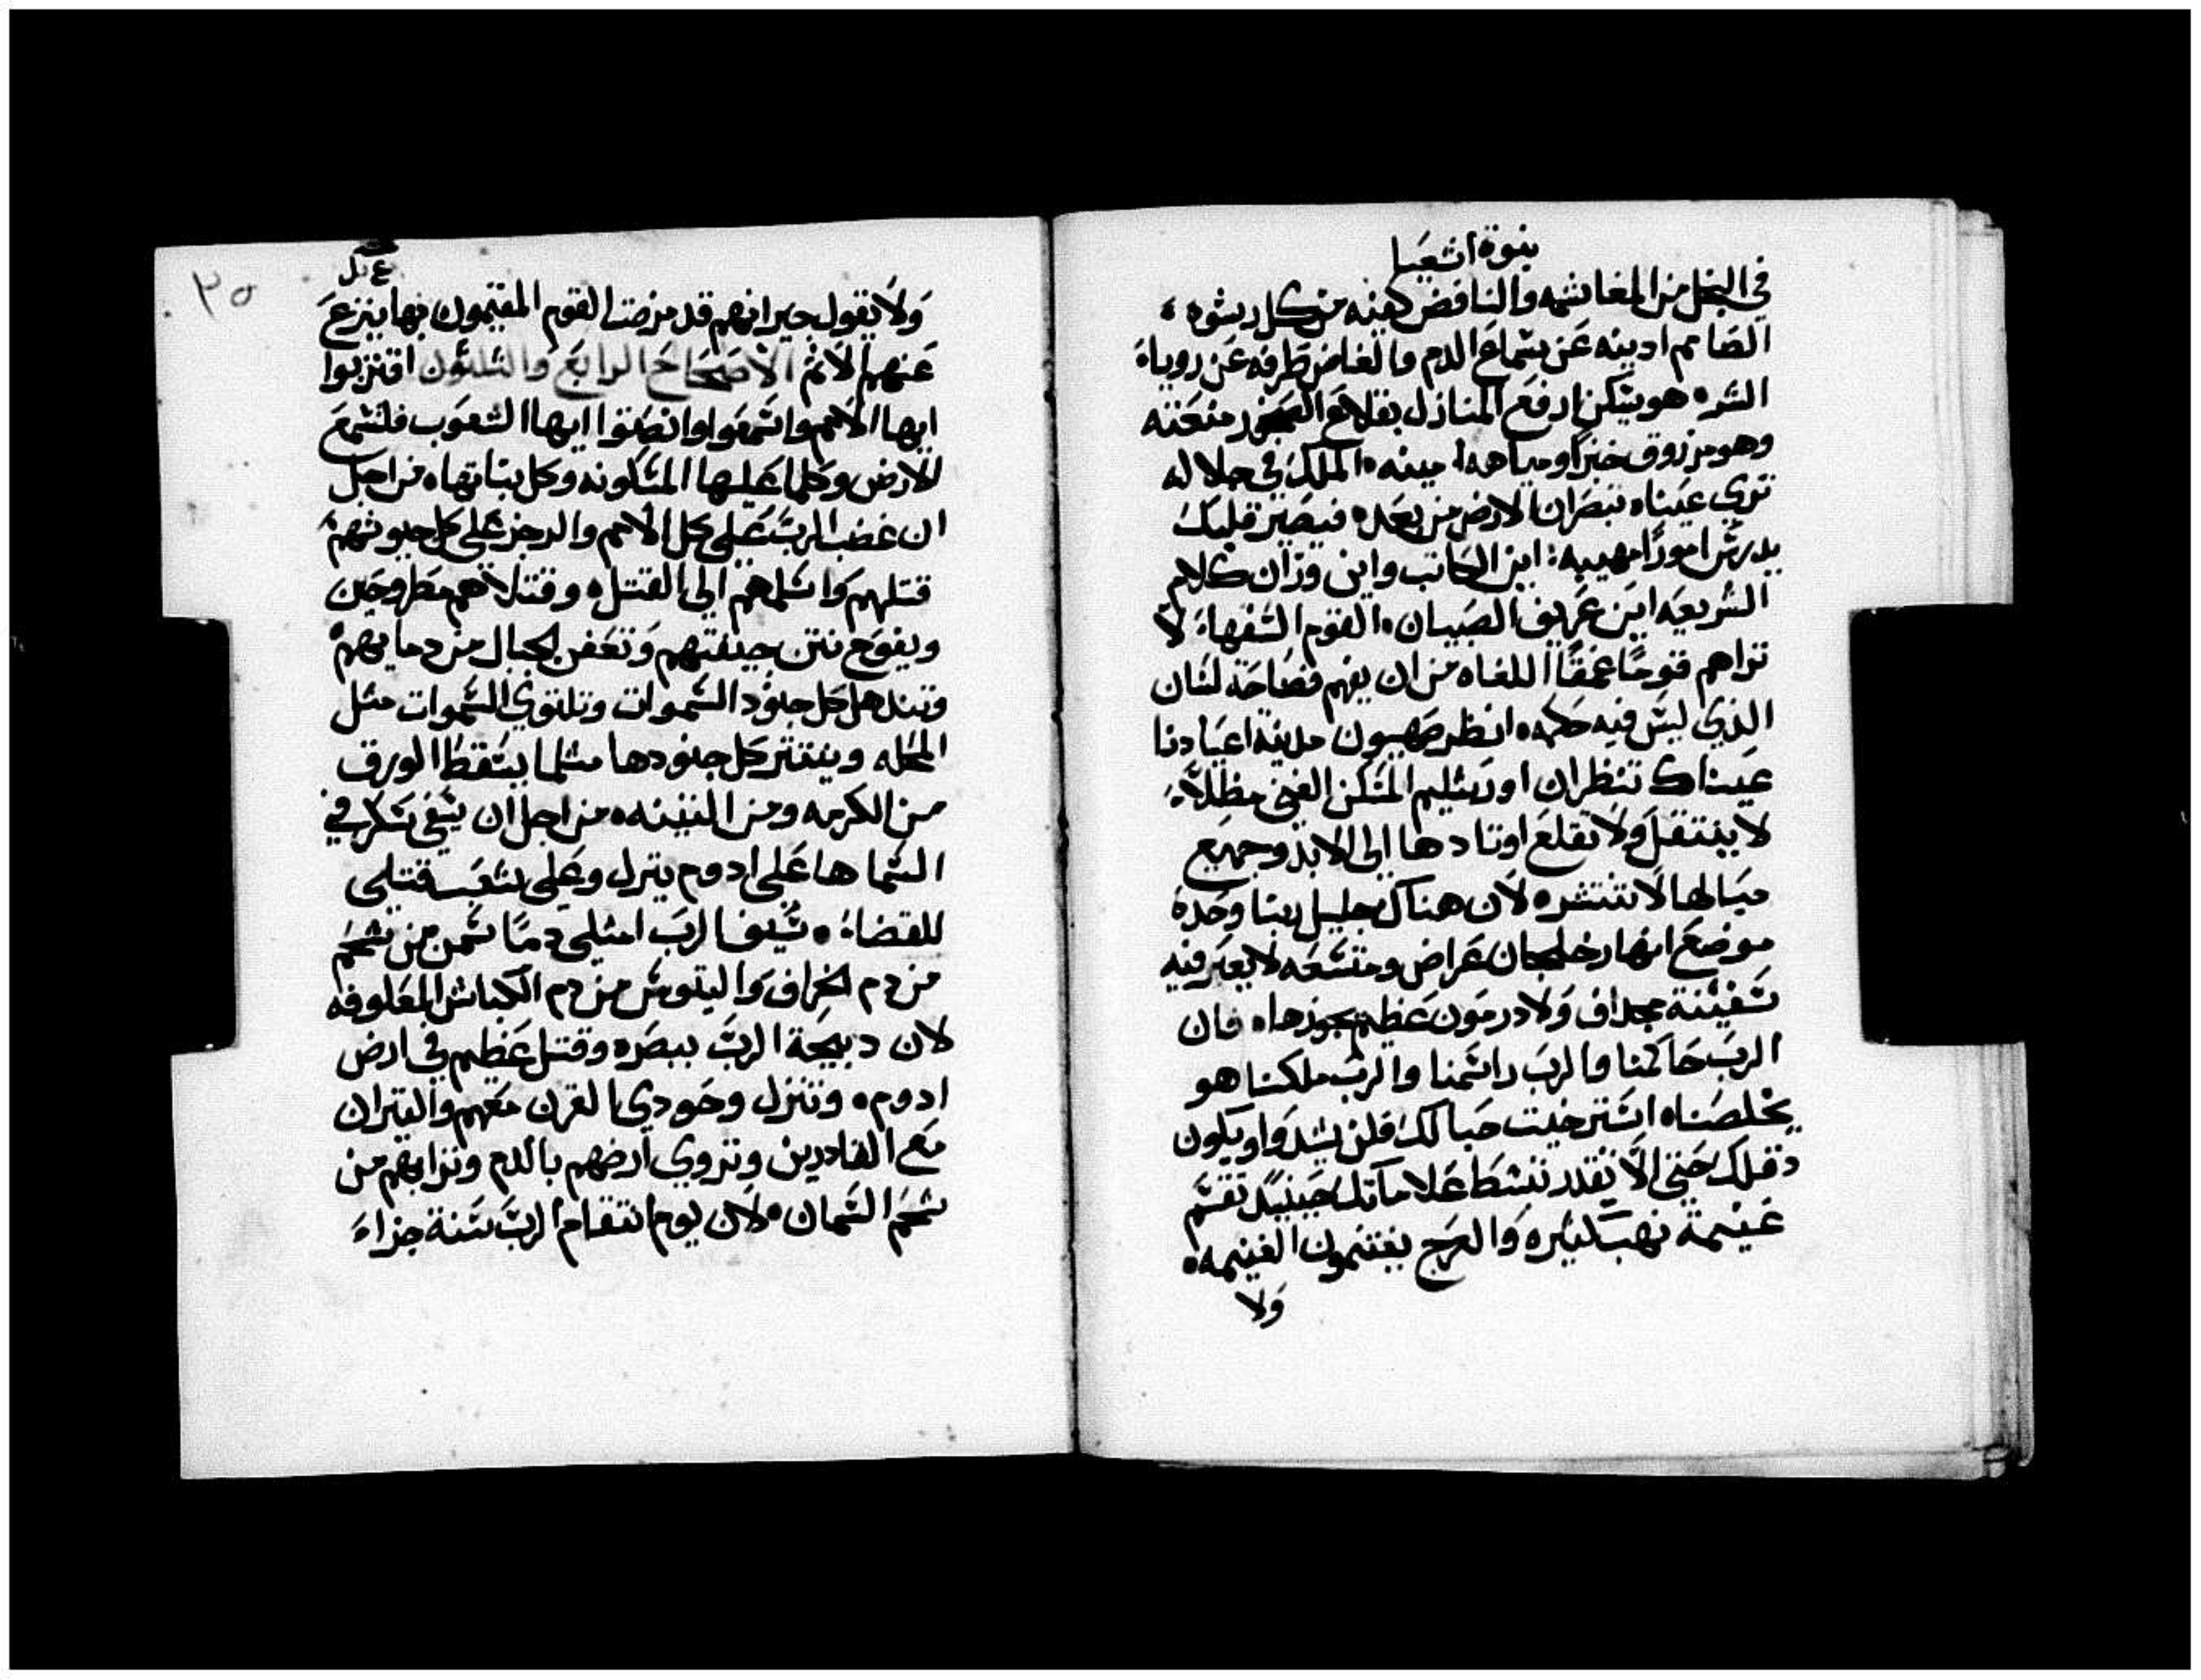 نبوة اشعيا
في البخل من المغاشمه والنافض كفيه من كل رشوه
الصَامم اذنيه عَن سَماعَ الدم والغامض طرفه عَن روياهَ
الشر هو يسَكن ارفع المنازل بقلاعَ الصَخور منعَته
وهو مرزوق خبزًا ومياهه امينه الملك في جلاله
تري عَيناه تبصَران الارض من بعَد فيصَير قلبك
يدرسَ امورًا مهيبه اين الكاتب واين وزان كلام
الشريعَه اين عَريف الصَبيان القوم السَفهاء لا
تراهم قومًا عَمقًا اللغاه من ان يفهم فصَاحَة لسَان
الذي ليسَ فيه حَكمه انظر صَهيون مدينة اعيَادنا
عَيناك تنظران اورشليم المسَكن الغني مظلاً
لا ينتقل ولا تقلعَ اوتادها الي الابد وجميع
حبَالها لا تنتشر لان هناك جليل ربنا وحَده
موضعَ انهار خلجان عَراض ومتسَعَه لا يعَبر فيه
سَفينة مجداف وَلا درمَون عَظيم يجوزها فان
الربَ حَاكمنا والربَ راسَمنا والربَ ملكنا هو
يخلصَنا اسَترخيت حَبالك فلن يشدوا ويكون
دقلك حَتي الا يقدر تنشط عَلاماتك حَينيذ تقسَم
غَنيمة نهب كثيره وَالعَرج يغتنمون الغنيمه
وَلا
٣٥
وَلا يقول جيرانهم قد مرضت القوم المقيمون بها ينزعَ
عَنهم الاثم الاصَحَاحَ الرابعَ وَالثلثون اقتربوا
ايها الامم واسَمعَوا وانصَتوا ايها الشعَوب فلتسَمعَ
الارض وكلما عَليها المسَكونه وكل نباتها من اجل
ان غضب الربَ عَلي كل الامم والرجز عَلي كل جيوشهم
قتلهم وَاسَلمهم الي القتل وقتلاهم مطروحَين
ويفوح نتن جيفتهم وتعَفن الجبال من دمايهم
وتندهل كل جنود السَموات وتلتوي السَموات مثل
المجله وينتثر كل جنودها مثلما يسَقط الورق
من الكرمه ومن التينه من اجل ان سَيفي سَكر في
السَما ها عَلي ادوم ينزل وعَلي شعَب قتلي
للقضاء سَيف الربَ امتلي دمًا سَمن من شحَم
من دم الخراف وَالتيوسَ من دم الكباش المعَلوفه
لان دبيحَة الربَ ببصَره وقتل عَظيم في ارض
ادوم وتنزل وحَودي القرن معَهم والثيران
معَ القادرين وتروي ارضهم بالدم وترابهم من
شحَم السَمان لان يوم انتقام الربَ سَنة جزاء